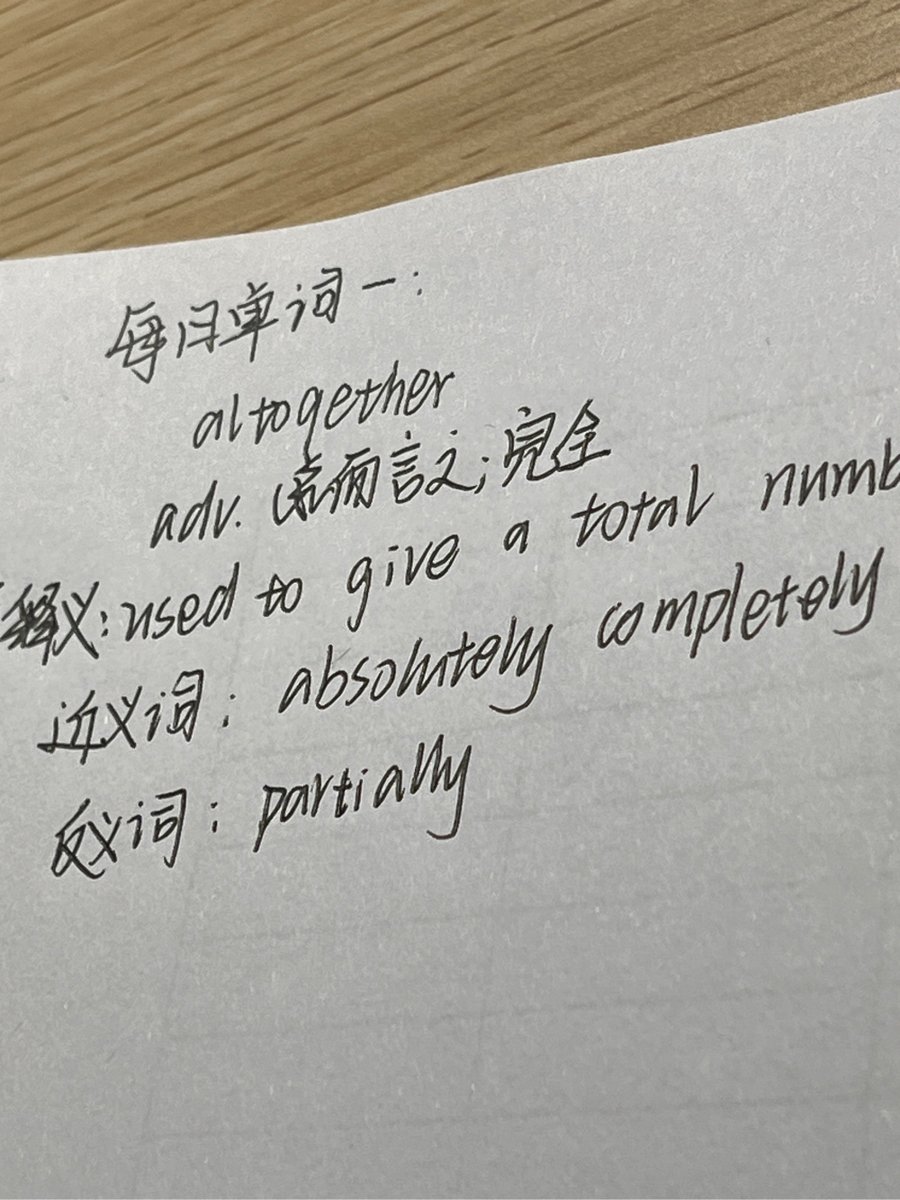 每日单词一:
altogether
adv. 总而言之; 完全
释义: used to give a total numb
近义词: absolutely completely
反义词: partially